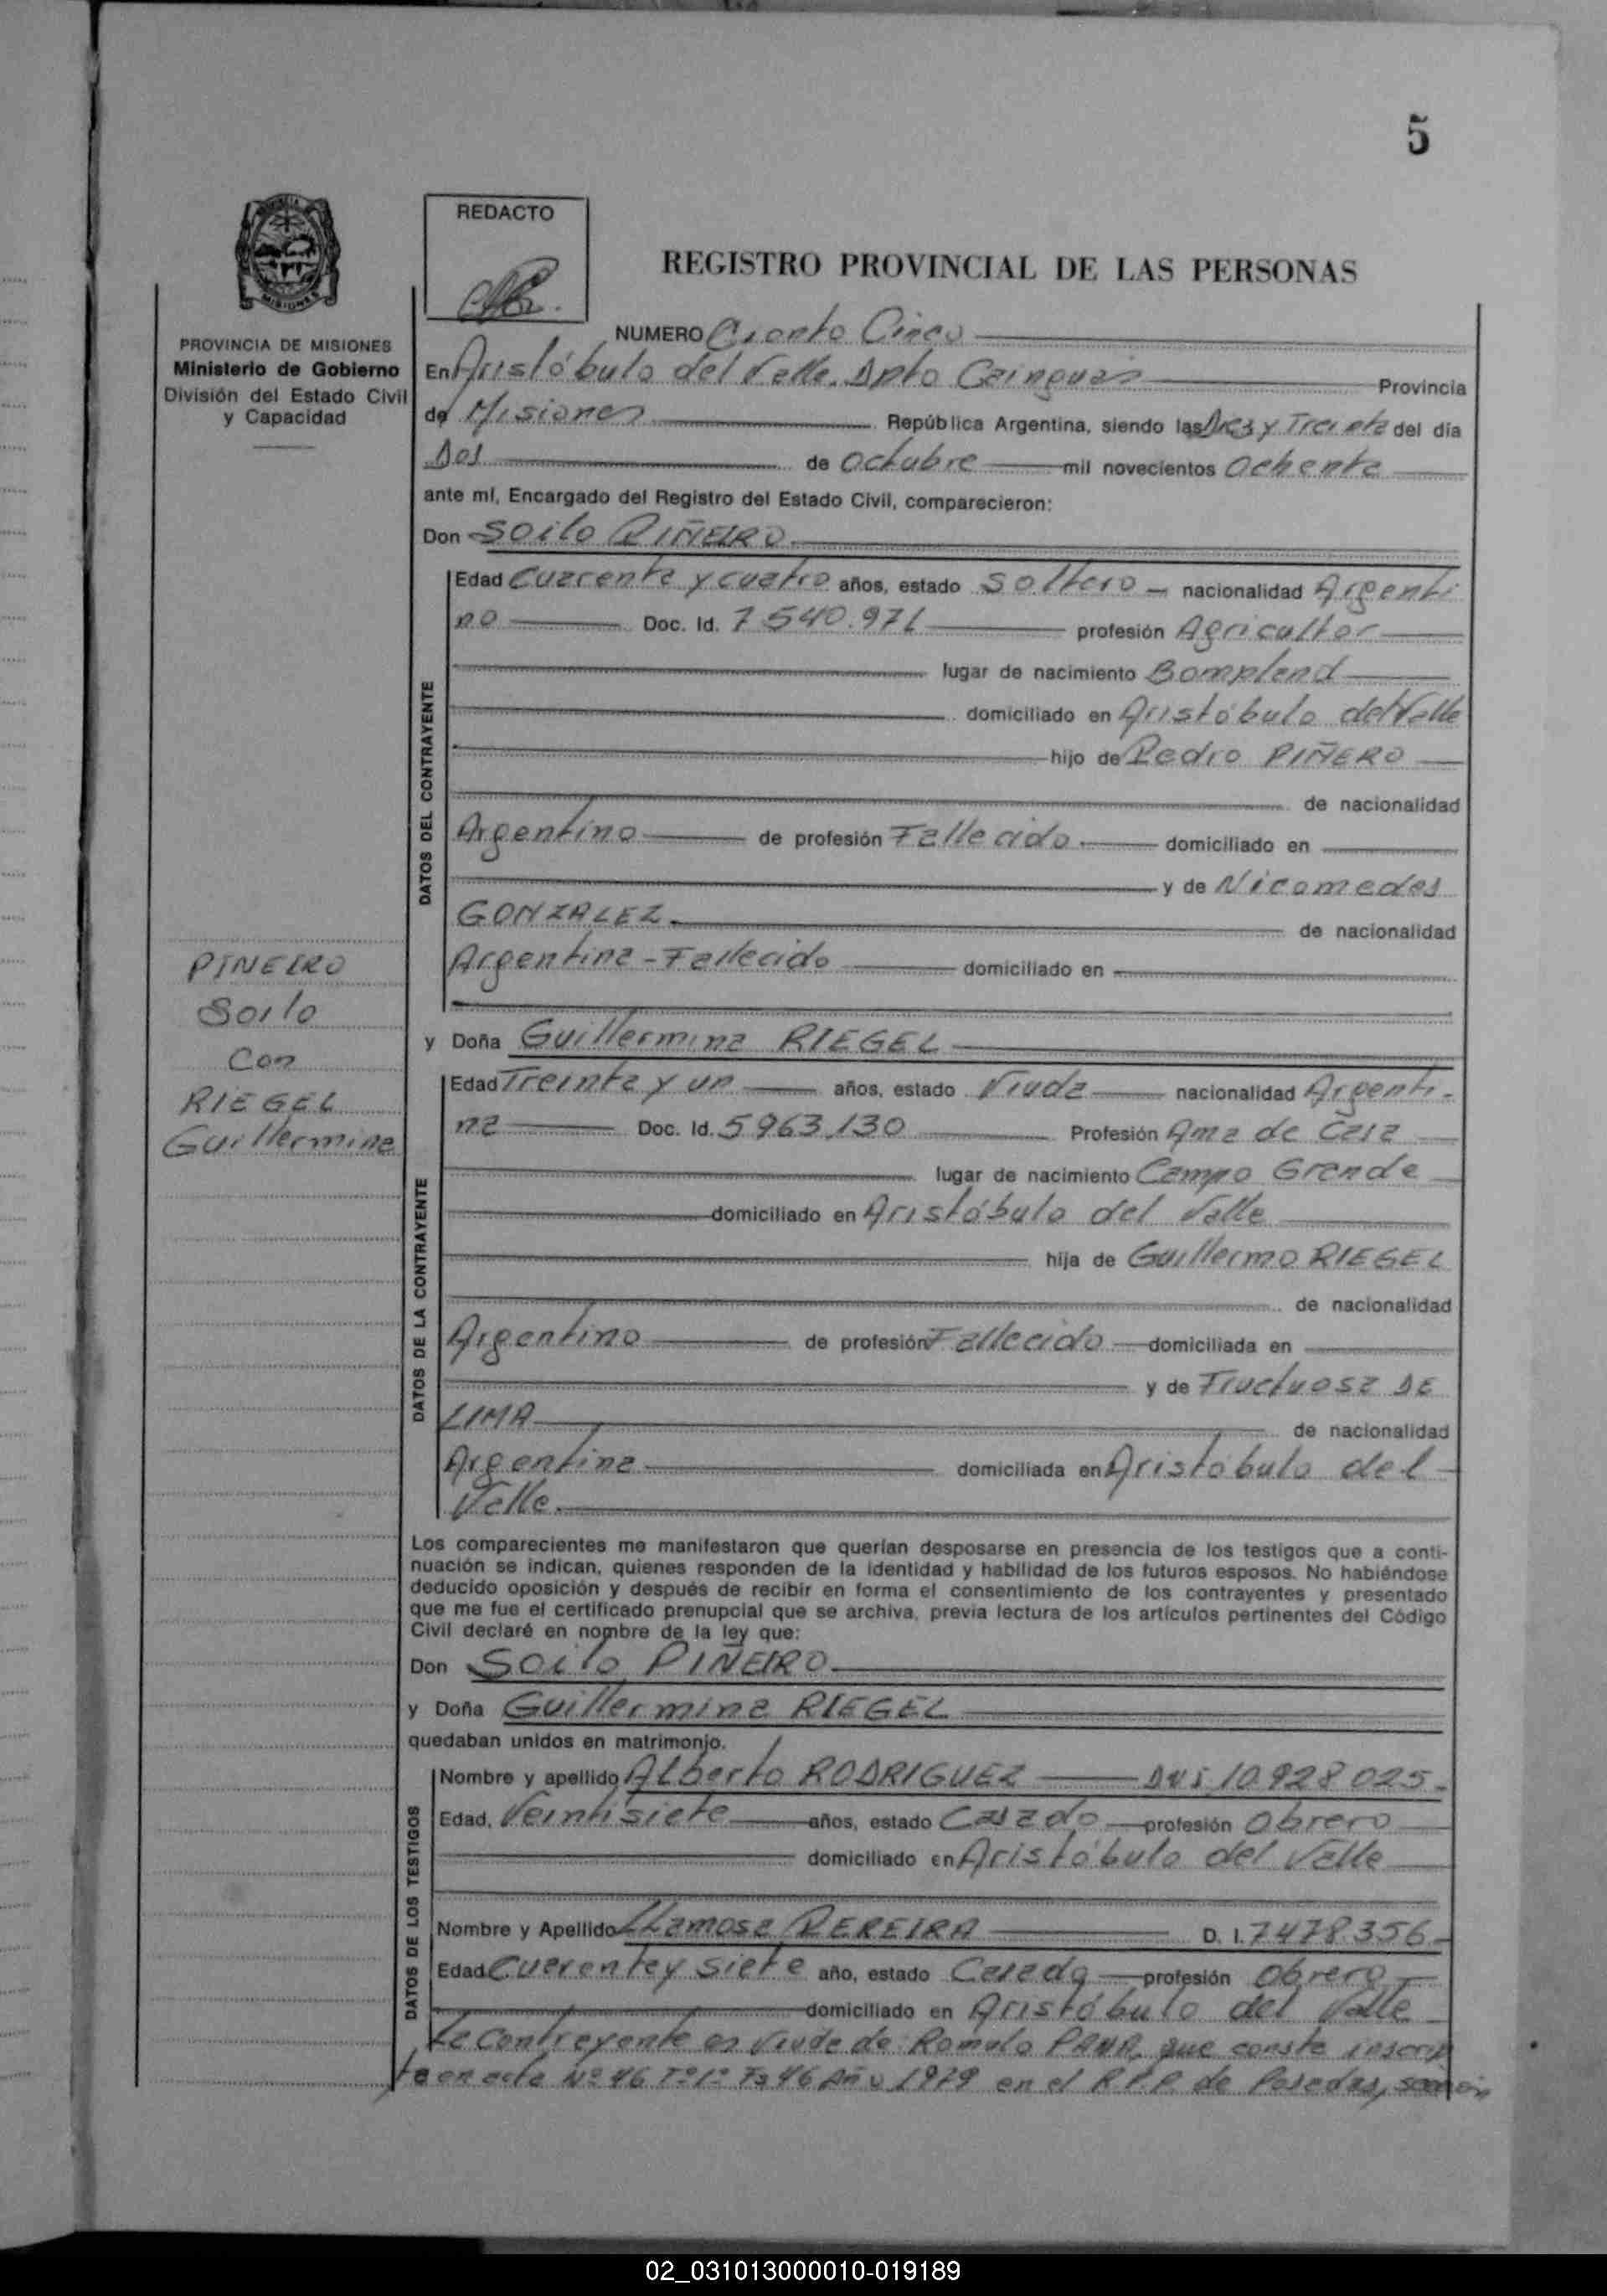 5
REDACTO
REGISTRO PROVINCIAL DE LAS PERSONAS
NUMERO Ciento Cinco
PROVINCIA DE MISIONES
Ministerio de Gobierno
División del Estado Civil
y Capacidad
En Aristóbulo del Valle, Dpto Cainguás Provincia
de Misiones República Argentina, siendo las Diez y Treinta del día
Dos de Octubre mil novecientos Ochenta
ante mí, Encargado del Registro del Estado Civil, comparecieron:
Don Soilo PIÑEIRO
DATOS DEL CONTRAYENTE
Edad Cuarenta y cuatro años, estado Soltero nacionalidad Argenti
no Doc. Id. 7.540.971 profesión Agricultor
lugar de nacimiento Bompland
domiciliado en Aristóbulo del Valle
hijo de Pedro PIÑERO
de nacionalidad
Argentino de profesión Fallecido domiciliado en
y de Nicomedes
GONZALEZ de nacionalidad
Argentina - Fallecido domiciliado en
PIÑEIRO
Soilo
Con
RIEGEL
Guillermina
y Doña Guillermina RIEGEL
DATOS DE LA CONTRAYENTE
Edad Treinta y un años, estado Viuda nacionalidad Argenti-
na Doc. Id. 5.963.130 Profesión Ama de Casa
lugar de nacimiento Campo Grande
domiciliado en Aristóbulo del Valle
hija de Guillermo RIEGEL
de nacionalidad
Argentino de profesión Fallecido domiciliada en
y de Fructuosa DE
LIMA de nacionalidad
Argentina domiciliada en Aristóbulo del
Valle.
Los comparecientes me manifestaron que querían desposarse en presencia de los testigos que a conti-
nuación se indican, quienes responden de la identidad y habilidad de los futuros esposos. No habiéndose
deducido oposición y después de recibir en forma el consentimiento de los contrayentes y presentado
que me fue el certificado prenupcial que se archiva, previa lectura de los artículos pertinentes del Código
Civil declaré en nombre de la ley que:
Don Soilo PIÑEIRO
y Doña Guillermina RIEGEL
quedaban unidos en matrimonio.
DATOS DE LOS TESTIGOS
Nombre y apellido Alberto RODRIGUEZ DNI 10.928.025
Edad, Veintisiete años, estado Casado profesión Obrero
domiciliado en Aristóbulo del Valle
Nombre y Apellido Llamosa PEREIRA D. I. 7.478.356
Edad Cuarentey siete año, estado Casado profesión Obrero
domiciliado en Aristóbulo del Valle
La Contrayente es Viuda de Romulo que consta inscrip
ta en acta Nº 46 Tº 1º Fº 46 Año 1979 en el R.P.P. de Posadas,
02_031013000010-019189